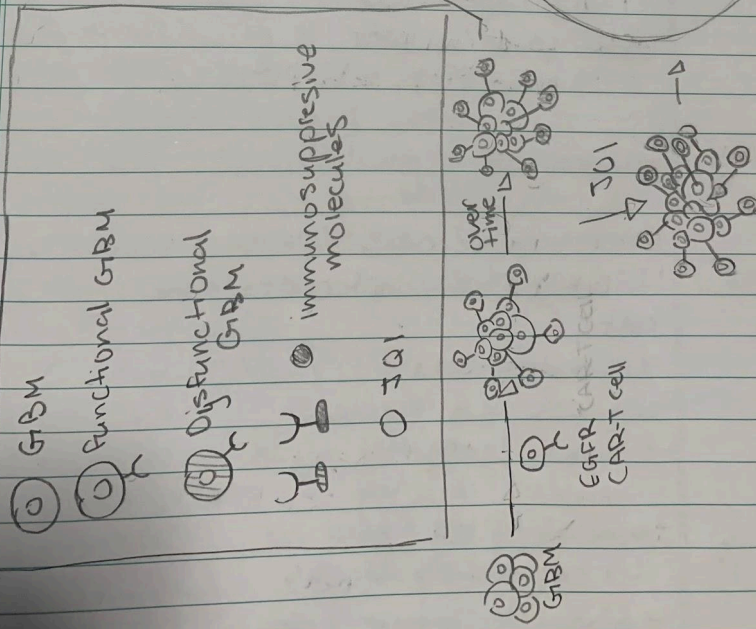 GBM
Functional GBM
Disfunctional
GBM
immunosuppresive
molecules
JQ1
GBM
EGFR
CAR-T cell
CAR-T Cell
over
time
JQ1